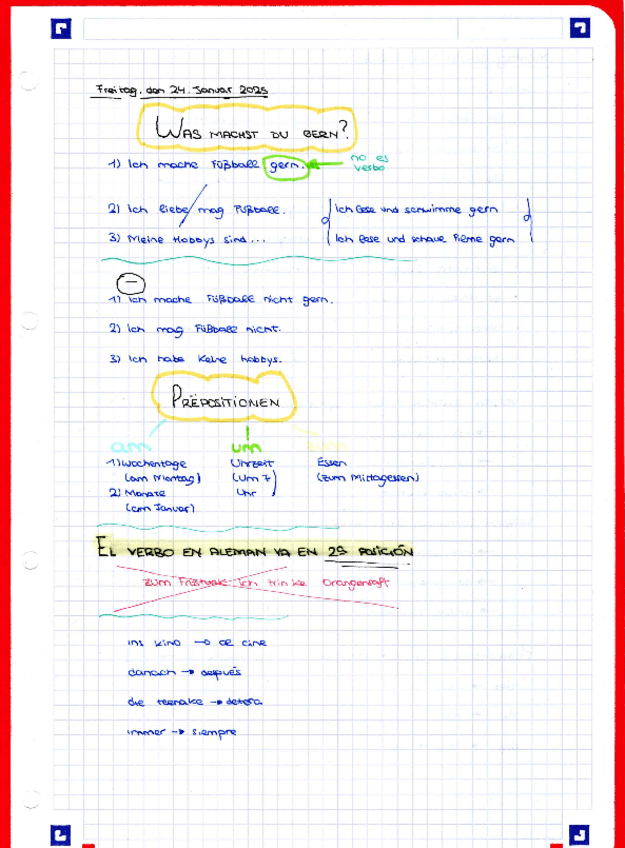 Freitag, den 24. Januar 2025
WAS MACHST DU GERN?
1) Ich mache Fußball gern. no es verbo
2) Ich liebe/mag Fußball.
Ich lese und schwimme gern
3) Meine Hobbys sind...
Ich lese und schaue Filme gern
1) Ich mache Fußball nicht gern.
2) Ich mag Fußball nicht.
3) Ich habe keine hobbys.
PRÉPOSITIONEN
am um
1) Wochentage Uhrzeit Essen
(am Montag) (um 7 (zum Mittagessen)
2) Monate Uhr)
(am Januar)
EL VERBO EN ALEMAN VA EN 2ª POSICIÓN
zum ich trinke Orangensaft
ins kino → al cine
danach → después
die →
immer → siempre